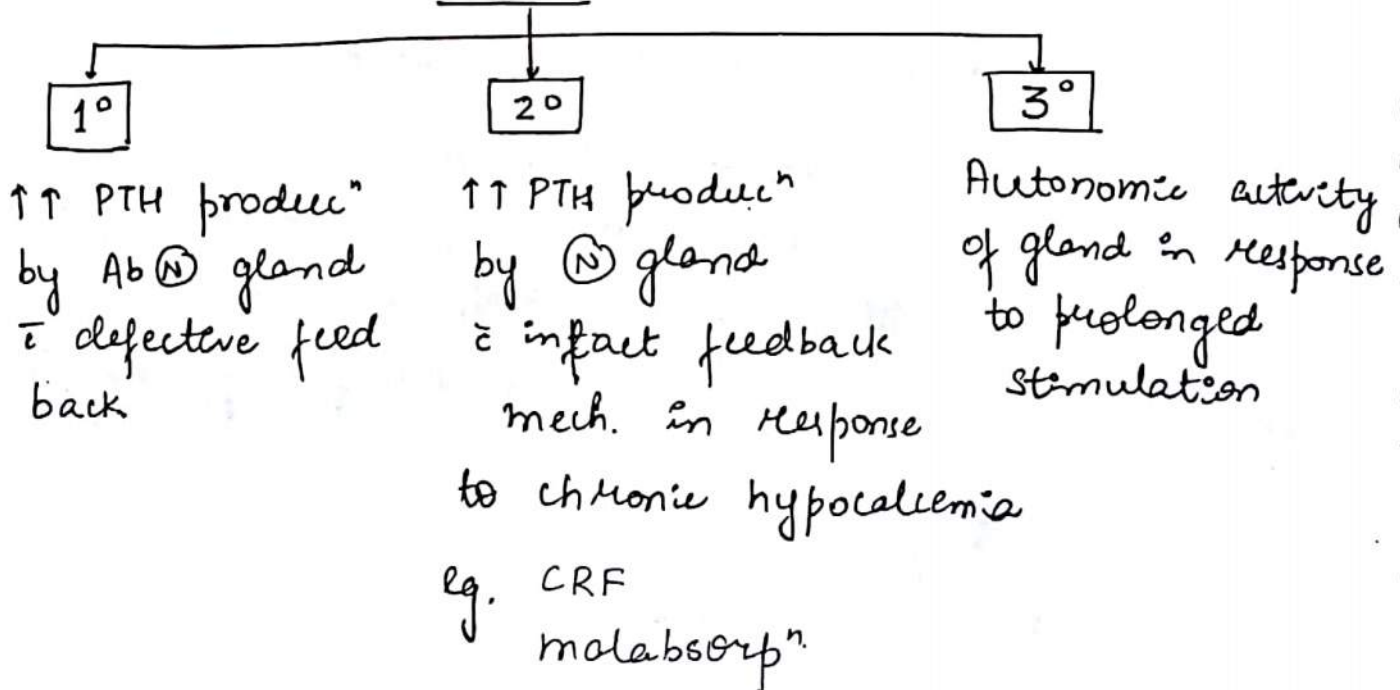 1°
↑↑ PTH producⁿ
by Ab Ⓝ gland
c̄ defective feed
back
2°
↑↑ PTH producⁿ
by Ⓝ gland
c̄ intact feedback
mech. in response
to chronic hypocalcemia
eg. CRF
malabsorpⁿ
3°
Autonomic activity
of gland in response
to prolonged
stimulation